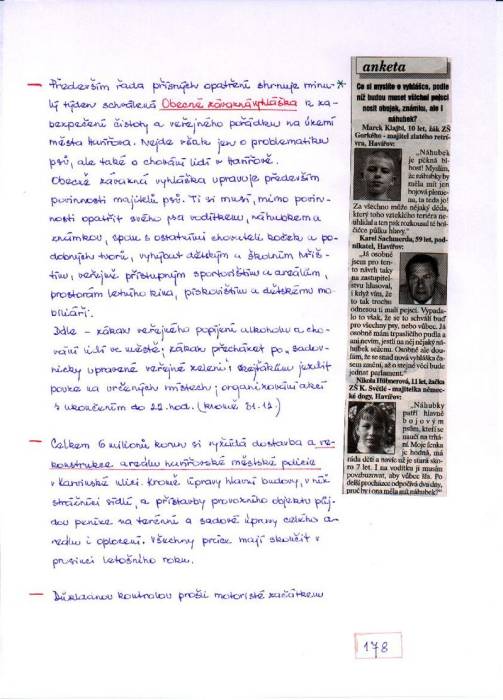 — Především řada přísných opatření shrnuje minu-*
lý týden schválená Obecně závazná vyhláška k za-
bezpečení čistoty a veřejného pořádku na území
města Havířova. Nejde však jen o problematiku
psů, ale také o chování lidí v Havířově.
Obecně závazná vyhláška upravuje především
povinnosti majitelů psů. Ti si musí, mimo povin-
nosti opatřit svého psa vodítkem, náhubkem a
známkou, spolu s ostatními chovateli koček a po-
dobných tvorů, vyhýbat dětským a školním hřiš-
tím, veřejně přístupným sportovištím a areálům,
prostorám letního kina, pískovištím a dětskému mo-
biliáři.
Dále – zákaz veřejného popíjení alkoholu a cho-
vání lidí ve městě; zákaz přecházet po "sadov-
nicky upravené veřejné zeleni"; skejťákům jezdit
pouze na určených místech; organizování akcí
s ukončením do 22. hod. (kromě 31.12.)
— Celkem 6 milionů korun si vyžádá dostavba a re-
konstrukce areálu havířovské městské policie
v Karvinské ulici. Kromě úpravy hlavní budovy, v níž
strážníci sídlí, a přístavby provozního objektu půj-
dou peníze na terénní a sadové úpravy celého a-
reálu i oplocení. Všechny práce mají skončit v
prosinci letošního roku.
— Důkladnou kontrolou prošli motoristé začátkem
178
anketa
Co si myslíte o vyhlášce, podle
níž budou muset všichni pejsci
nosit obojek, známku, ale i
náhubek?
Marek Klajbl, 10 let, žák ZŠ
Gorkého - majitel zlatého retri-
vra, Havířov:
„Náhubek
je pěkná bl-
bost! Myslím,
že náhubky by
měla mít jen
bojová pleme-
na, ta teda jo!
Za všechno může nějaký děda,
který toho vzteklého teriéra ne-
uhlídal a ten pak rozkousal té ho-
lčičce půlku hlavy.“
Karel Sachmerda, 59 let, pod-
nikatel, Havířov:
„Já osobně
jsem pro ten-
to návrh taky
na zastupitel-
stvu hlasoval,
i když vím, že
to tak trochu
odnesou ti malí pejsci. Vypada-
lo to však, že se to schválí buď
pro všechny psy, nebo vůbec. Já
osobně mám trpasličího pudla a
ani nevím, jestli na něj nějaký ná-
hubek seženu. Osobně ale dou-
fám, že se snad nová vyhláška ča-
sem změní, až o stejné věci bude
jednat parlament.“
Nikola Hübnerová, 11 let, žačka
ZŠ K. Světlé - majitelka němec-
ké dogy, Havířov:
„Náhubky
patří hlavně
bojovým
psům, kteří se
naučí na trhá-
ní. Moje fenka
je hodná, má
ráda děti a navíc už je stará sko-
ro 7 let. I na vodítku ji musím
povzbuzovat, aby vůbec šla. Po
delší procházce odpočívá dva dny,
proč by i ona měla mít náhubek?“